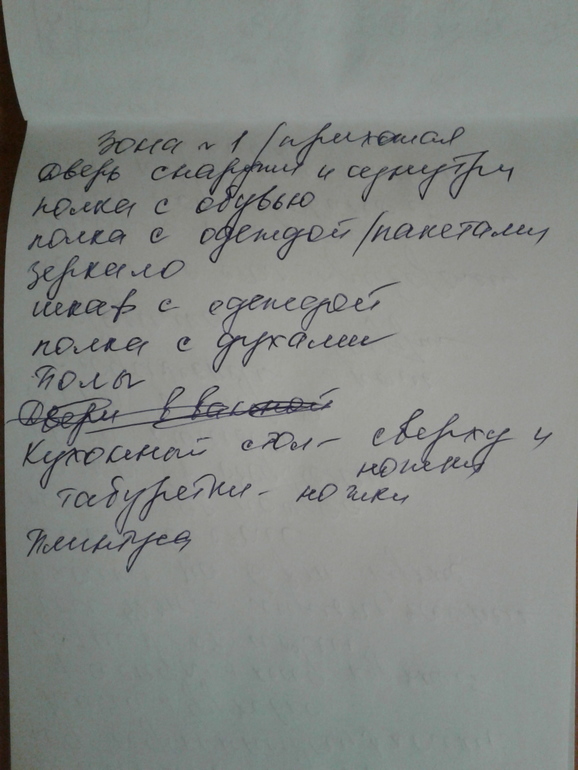 Зона №1 /прихожая
дверь снаружи и снутри
полка с обувью
полка с одеждой /пакетами
зеркало
шкаф с одеждой
полка с духами
Полы
Двери в ванной
Кухонный стол - сверху и
ножки
табуретки - ножки
Плинтуса